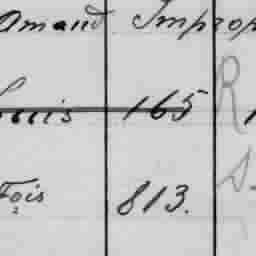 Amand Improp
Louis 165 R
Fois 813. S.